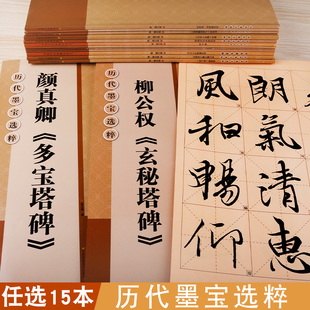 历代墨宝选粹
颜真卿《多宝塔碑》
历代墨宝选粹
柳公权《玄秘塔碑》
朗氣清惠
風和暢仰
任选15本
历代墨宝选粹